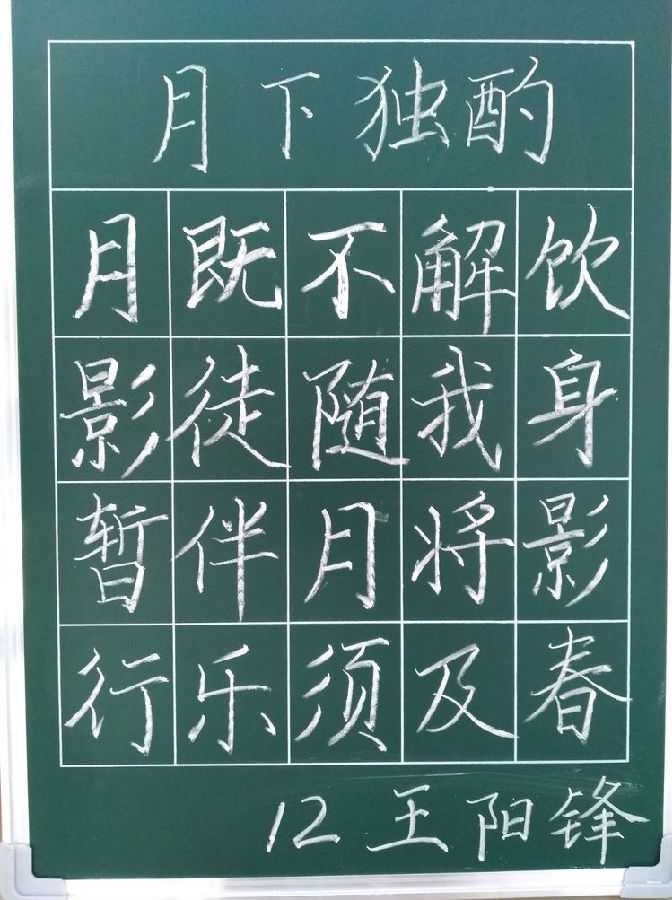 月下独酌
月既不解饮
影徒随我身
暂伴月将影
行乐须及春
12王阳锋